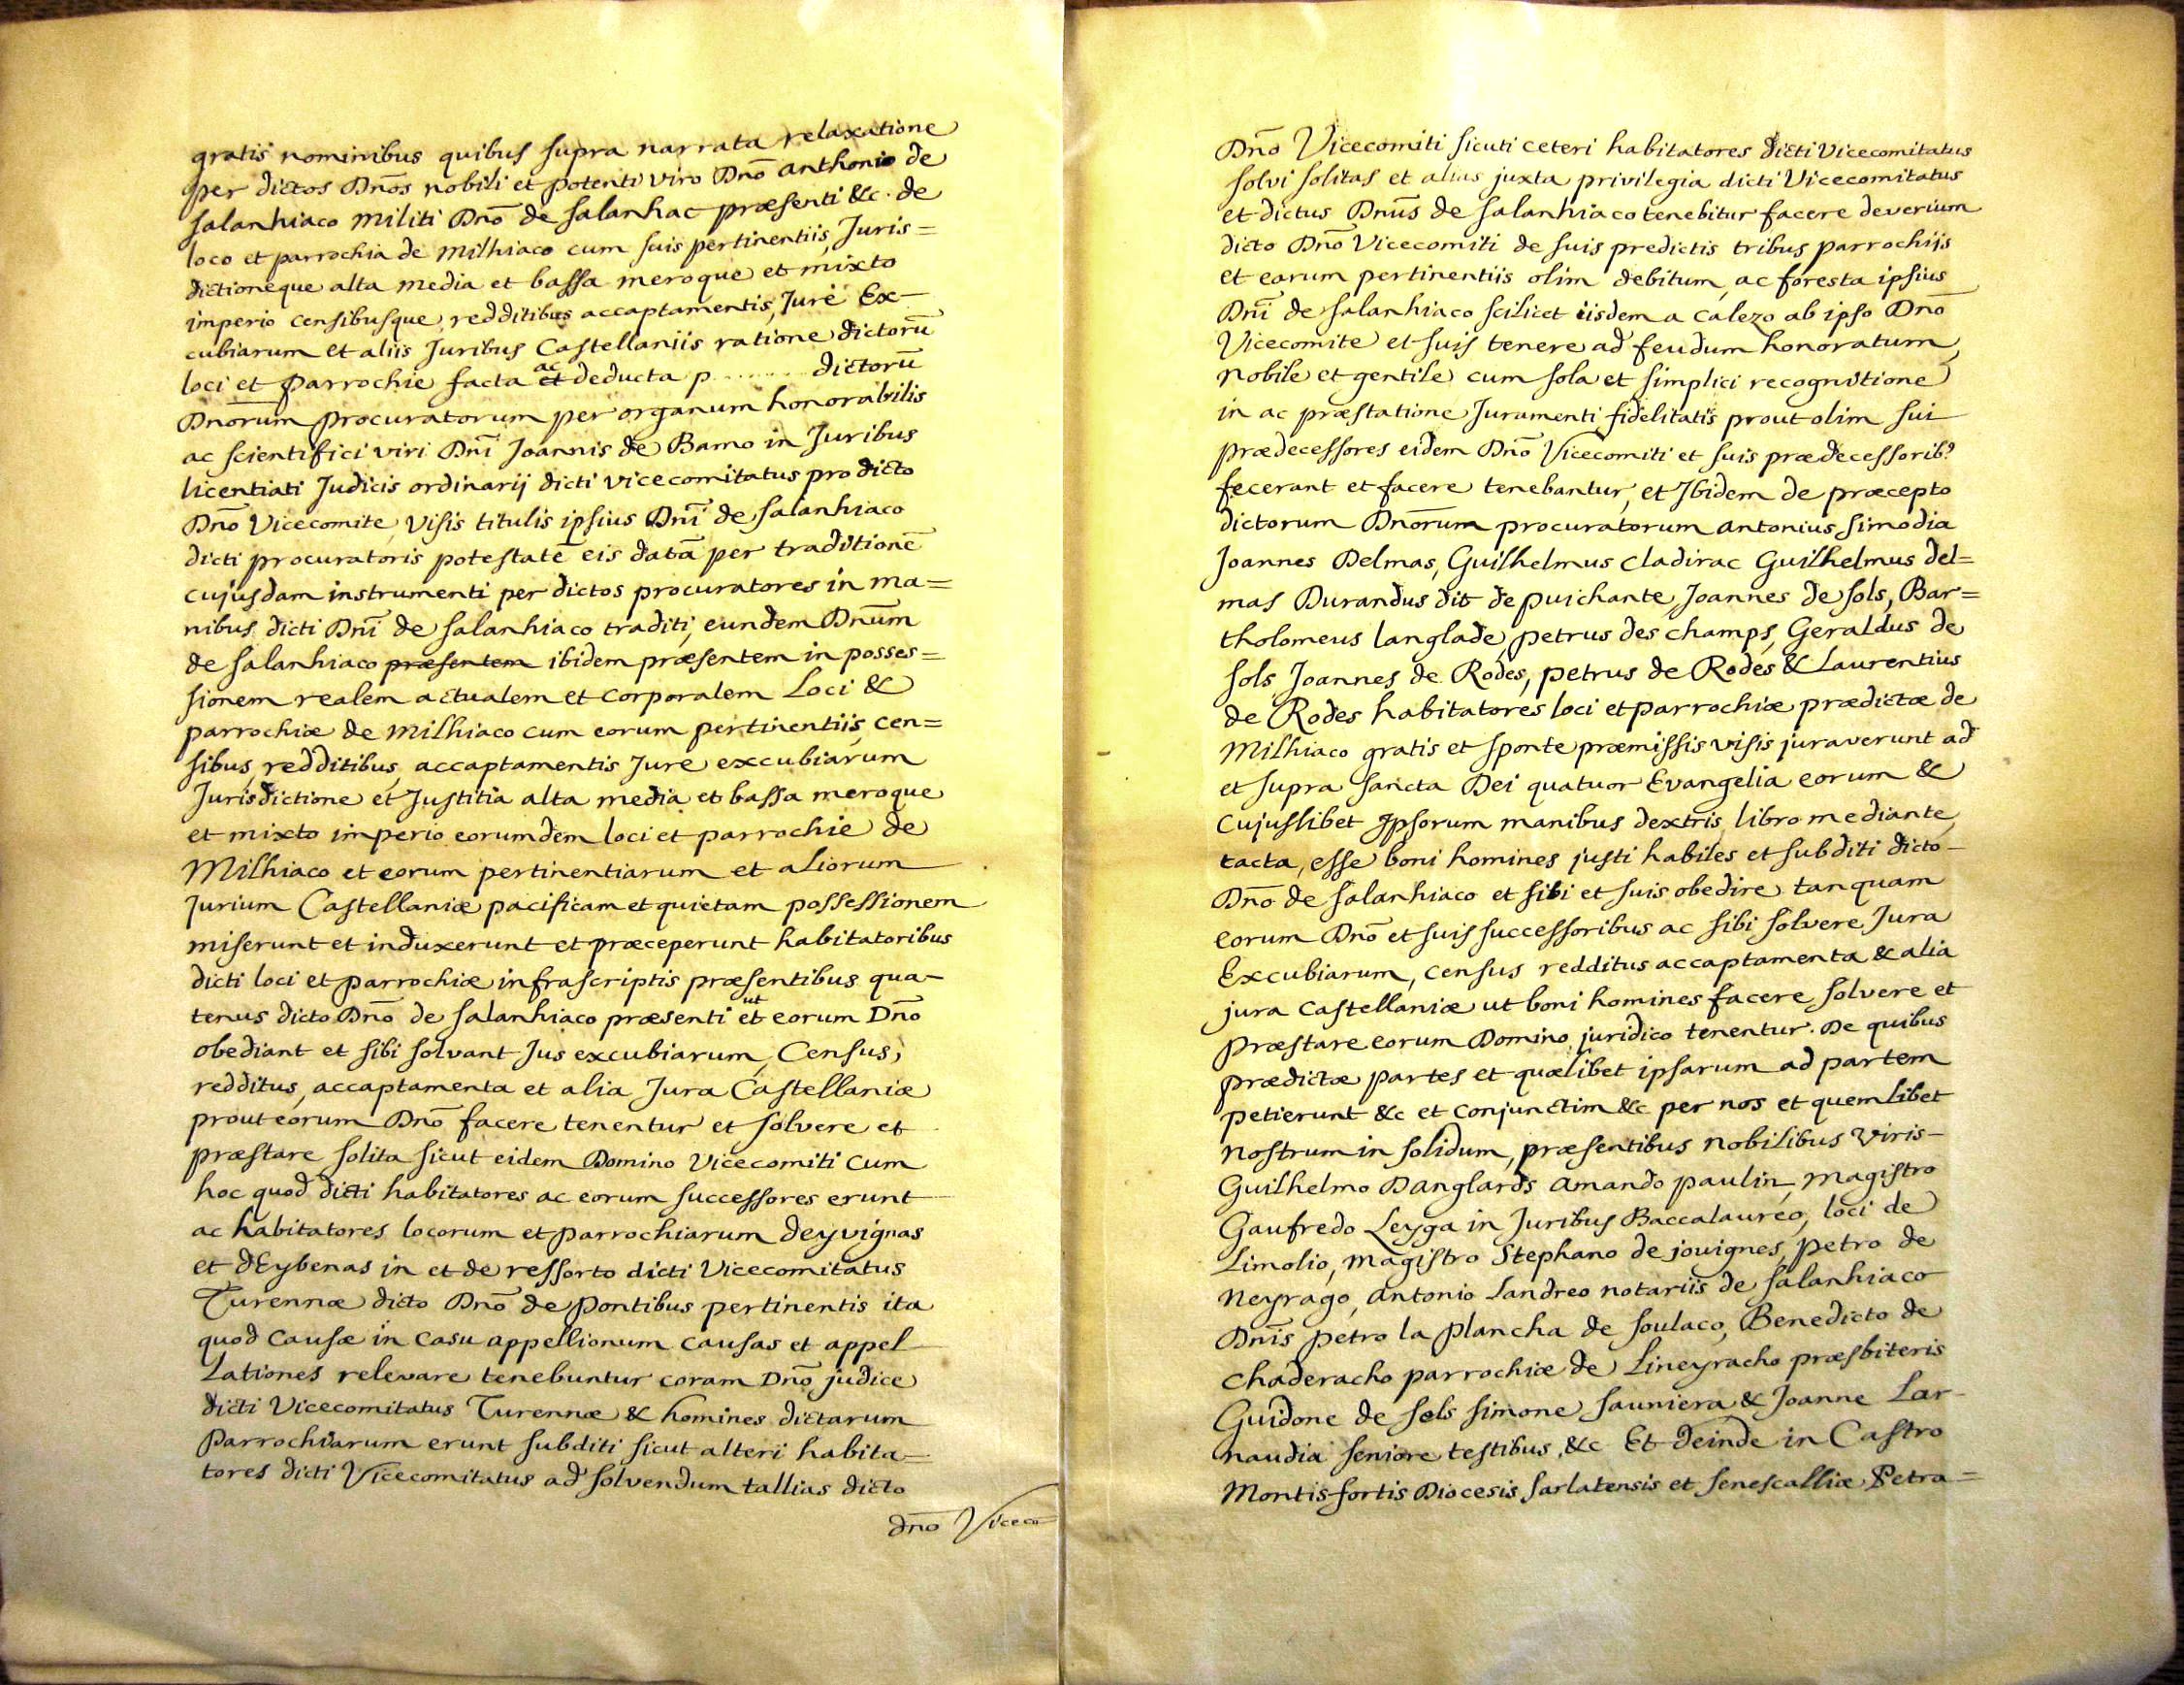 gratis nominibus quibus supra narrata relaxatione
per dictos Dnōs nobili et potenti viro Dnō anthonio de
Salanhiaco militi Dnō de Salanhac præsenti &c. de
loco et parrochia de Milhiaco cum suis pertinentiis, Juris=
dictioneque alta media et bassa meroque et mixto
imperio censibusque, redditibus accaptamentis, Jure Ex-
cubiarum et aliis Juribus Castellaniis ratione dictorū
loci et parrochie facta et ac deducta p......... dictorū
Dnōrum procuratorum per organum honorabilis
ac scientifici viri Dnī Joannis de Barno in Juribus
licentiati Judicis ordinarij dicti vicecomitatus pro dicto
Dnō Vicecomite, visis titulis ipsius Dnī de Salanhiaco
dicti procuratoris potestatē eis datā per traditionē
cujusdam instrumenti per dictos procuratores in ma=
nibus dicti Dnī de Salanhiaco traditi, eundem Dnūm
de Salanhiaco præsentem ibidem præsentem in posses=
sionem realem actualem et corporalem Loci &
parrochiæ de Milhiaco cum eorum pertinentiis, cen=
sibus, redditibus, accaptamentis Jure excubiarum
Jurisdictione et Justitia alta media et bassa meroque
et mixto imperio eorumdem loci et parrochie de
Milhiaco et eorum pertinentiarum et aliorum
Jurium Castellaniæ pacificam et quietam possessionem
miserunt et induxerunt et præceperunt habitatoribus
dicti loci et parrochiæ infrascriptis præsentibus qua-
tenus dicto Dnō de Salanhiaco præsenti et ut eorum Dnō
obediant et sibi solvant Jus excubiarum, Census,
redditus, accaptamenta et alia Jura Castellaniæ
prout eorum Dnō facere tenentur et solvere et
præstare solita sicut eidem Domino Vicecomiti cum
hoc quod dicti habitatores ac eorum successores erunt
ac habitatores locorum et parrochiarum deyvignas
et dEybenas in et de ressorto dicti Vicecomitatus
Turennæ dicto Dnō de Pontibus pertinentis ita
quod causæ in casu appellionum causas et appel
Lationes relevare tenebuntur coram Dnō judice
dicti Vicecomitatus Turennæ & homines dictarum
Parrochiarum erunt subditi sicut alteri habita-
tores dicti Vicecomitatus ad solvendum tallias dicto
dnō Viceco
Dnō Vicecomiti sicuti ceteri habitatores dicti Vicecomitatus
solvi solitas et alias juxta privilegia dicti Vicecomitatus
et dictus Dnūs de Salanhiaco tenebitur facere deverium
dicto Dnō Vicecomiti de suis predictis tribus parrochijs
et earum pertinentiis olim debitum, ac foresta ipsius
Dnī de Salanhiaco scilicet iisdem a Calezo ab ipso Dnō
Vicecomite et suis tenere ad feudum honoratum,
nobile et gentile cum sola et simplici recognitione
in ac præstatione Juramenti fidelitatis prout olim sui
prædecessores eidem Dnō Vicecomiti et suis prædecessorib9
fecerant et facere tenebantur, et Ibidem de præcepto
dictorum Dnōrum procuratorum antonius Simodia
Joannes Delmas, Guilhelmus cladirac Guilhelmus del=
mas Durandus dit de puichante, Joannes de sols, Bar=
tholomeus langlade, petrus des champs, Geraldus de
Sols Joannes de Rodes, petrus de Rodes & Laurentius
de Rodes habitatores loci et parrochiæ prædictæ de
Milhiaco gratis et sponte præmissis visis juraverunt ad
et supra Sancta Dei quatuor Evangelia eorum &
cujuslibet Ipsorum manibus dextris libro mediante,
tacta, esse boni homines justi habiles et subditi dicto-
Dnō de Salanhiaco et sibi et suis obedire tanquam
eorum Dnō et suis successoribus ac sibi solvere Jura
Excubiarum, census redditus accaptamenta & alia
jura castellaniæ ut boni homines facere solvere et
præstare eorum Domino juridico tenentur. De quibus
prædictæ partes et quælibet ipsarum ad partem
petierunt &c et conjunctim &c per nos et quemlibet
nostrum in solidum, præsentibus nobilibus viris-
Guilhelmo Danglards amando paulin, magistro
Gaufredo Leyga in Juribus Baccalaureo, loci de
Limolio, magistro Stephano de jouignes, petro de
neyrago, antonio Landreo notariis de Salanhiaco
Dnīs petro la plancha de soulaco, Benedicto de
chaderacho parrochiæ de Lineyracho præsbiteris
Guidone de sols simone sauniera & Joanne Lar-
naudia seniore testibus, &c Et deinde in Castro
Montis-fortis Diocesis Sarlatensis et senescalliæ Petra=